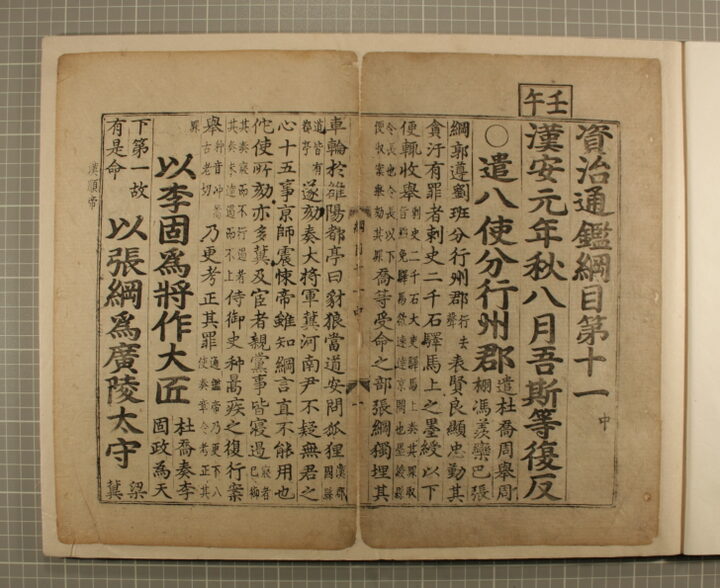 壬午
資治通鑑綱目第十一 中
漢安元年秋八月吾斯等復反
○遣八使分行州郡 遣杜喬周舉周
栩馮羨欒巴張
綱郭遵劉班分行州郡 行去
聲 表賢良顯忠勤其
貪汙有罪者刺史二千石驛馬上之墨綬以下
便輒收舉
喬等受命之部張綱獨埋其
車輪於雒陽都亭曰豺狼當道安問狐狸 漢郡
國縣
道皆有
都亭 遂劾奏大將軍冀河南尹不疑無君之
心十五事京師震悚帝雖知綱言直不能用也
佗使所劾亦多冀及宦者親黨事皆寢遏
其奏寢而不行遏者
其奏未達遏而不上 侍御史种暠疾之復行案
舉 行音冲暠
古老切 乃更考正其罪 通鑑帝乃更下八
使奏章令考正其
罪
以李固爲將作大匠 杜喬奏李
固政為天
下第一故
有是命 以張綱爲廣陵太守 梁
冀
漢順帝